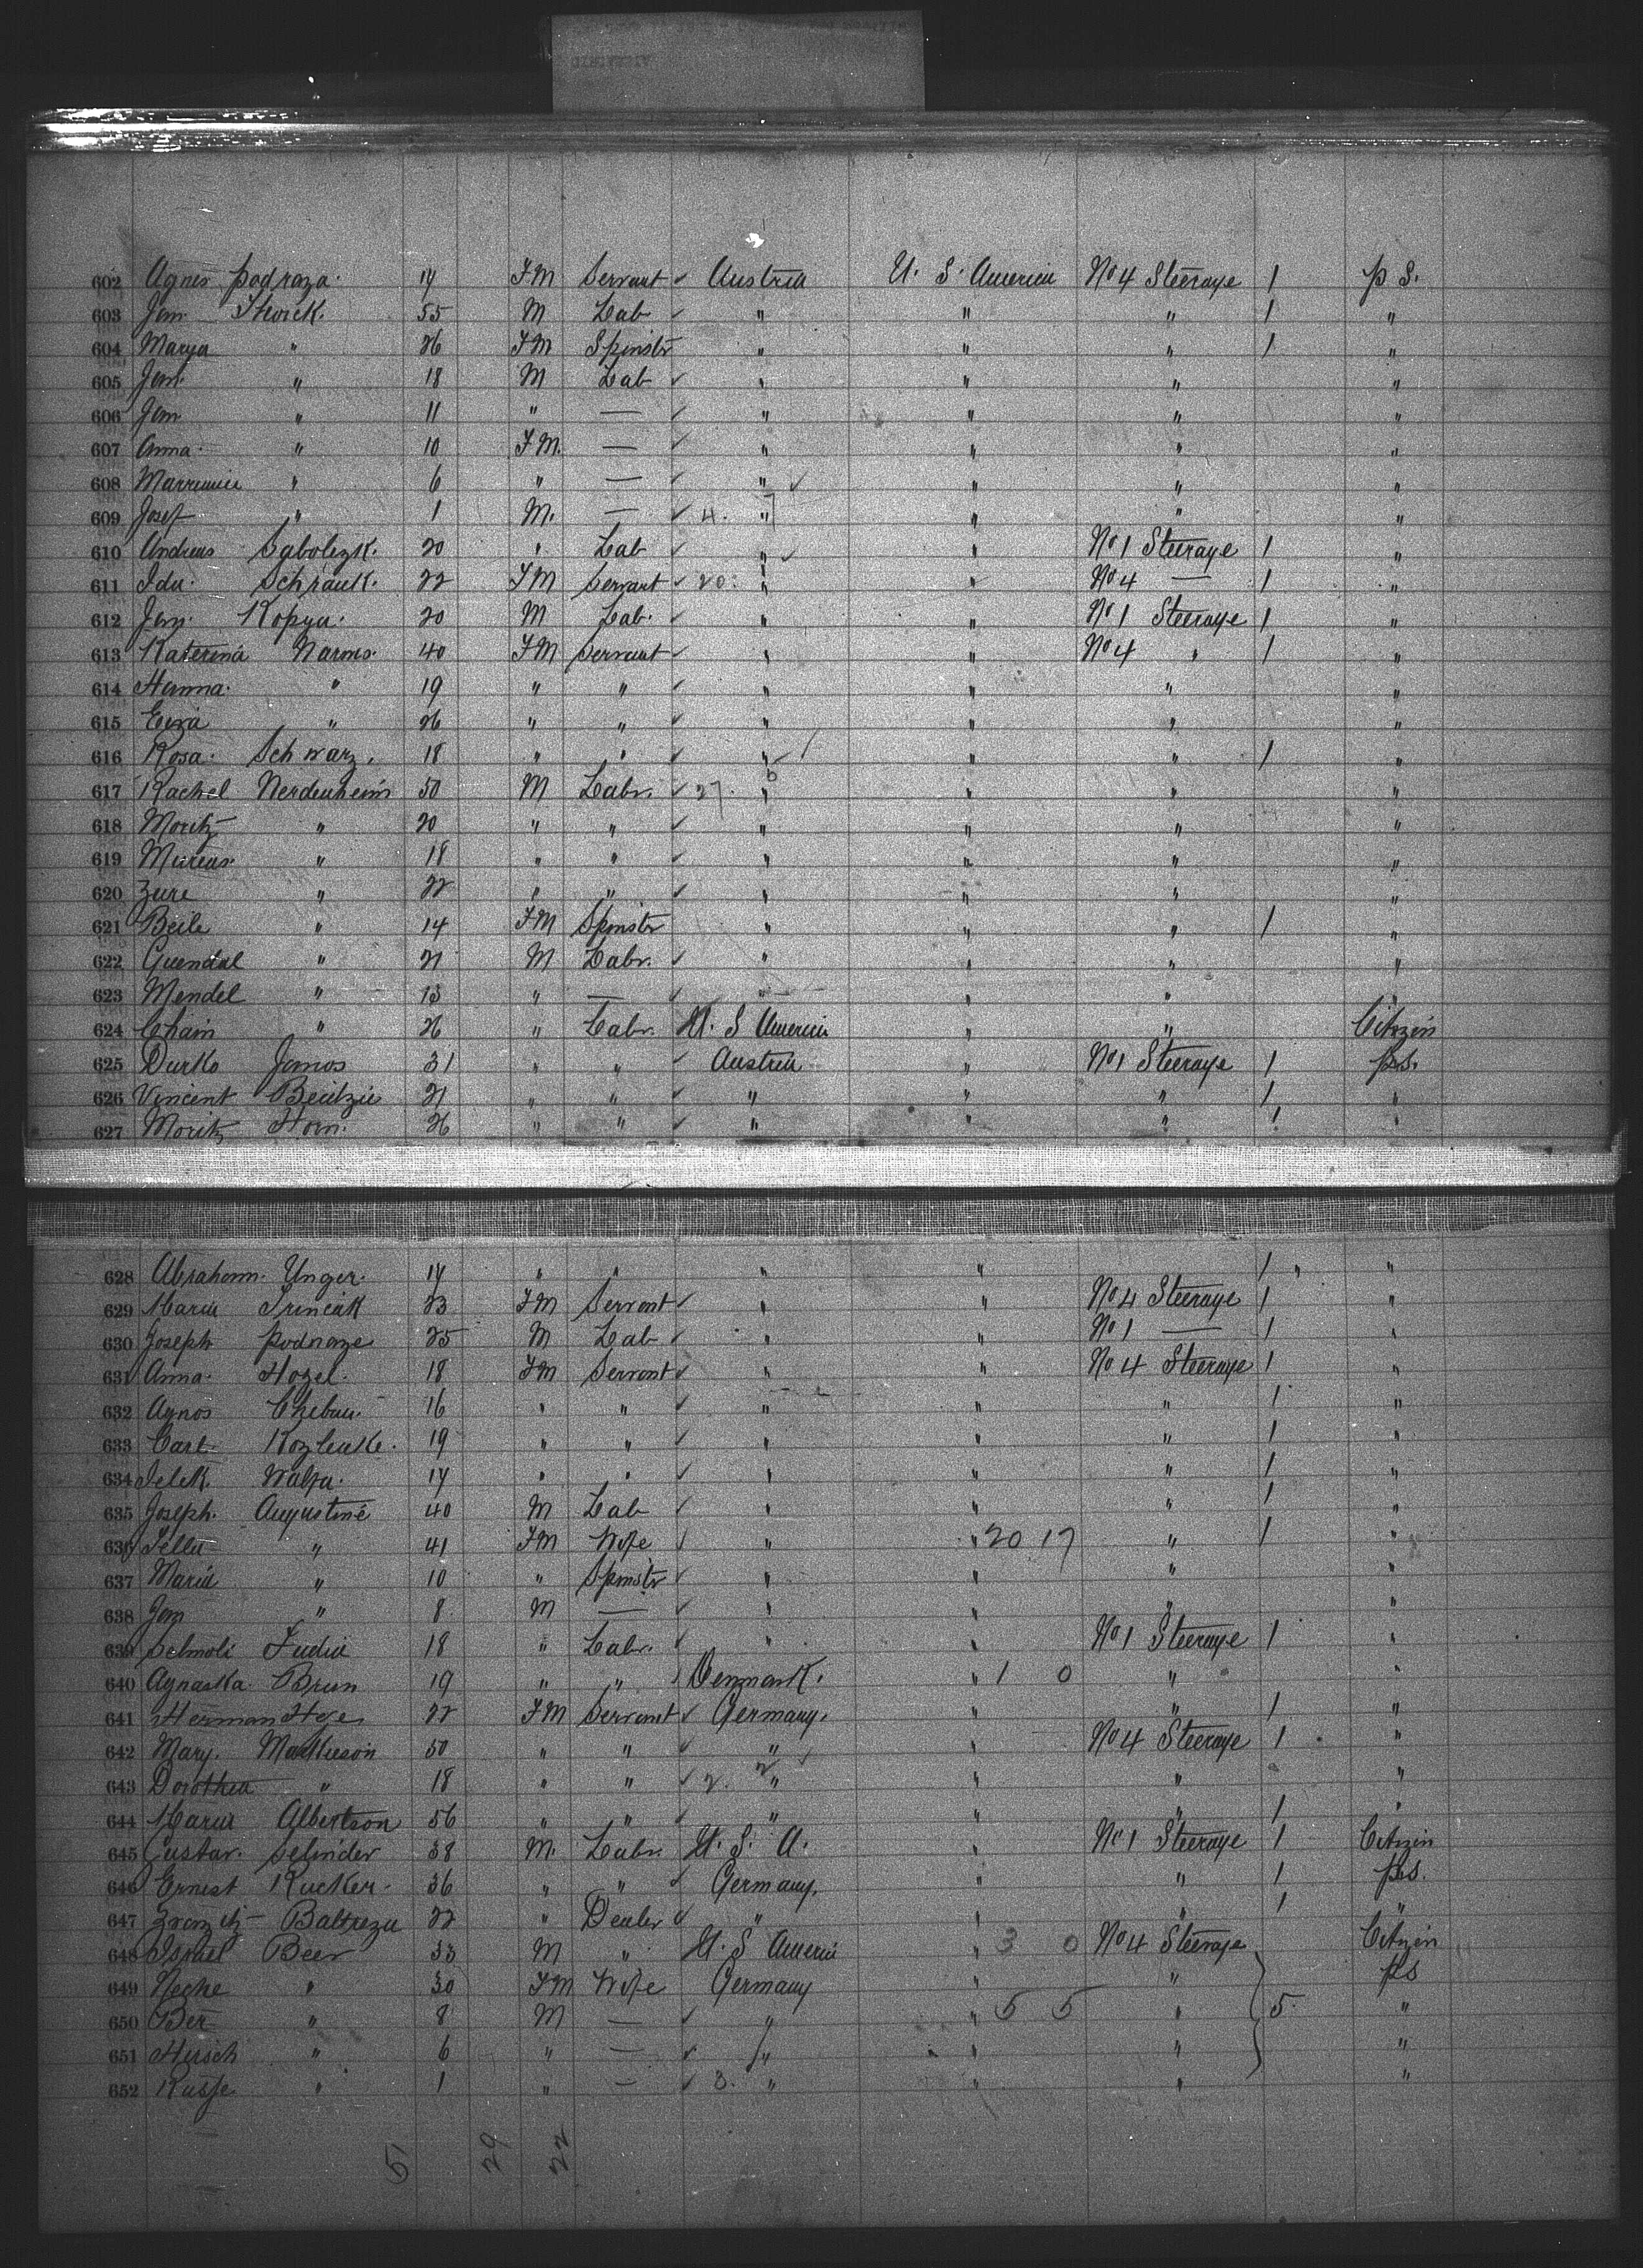 602 Agnes Podraza 17 FM Servant ✓ Austria U. S. America No 4 Steerage 1 p S.
603 Jan Stwick. 55 M Lab ✓ " " " 1 "
604 Marya " 26 FM Spinstr " " " 1 "
605 Jan " 18 M Lab ✓ " " " "
606 Jan " 11 " — ✓ " " " "
607 Anna " 10 FM. — ✓ " " " "
608 " 6 " — ✓ " ✓ " " "
609 Josef " 1 M. — ✓ 4. " " " "
610 Andreas Sabolezk. 20 " Lab ✓ " ✓ " No 1 Steerage 1 "
611 Ida Schrank. 22 FM Servant ✓ 20. " " No 4 — 1 "
612 Jan Kopya. 20 M Lab. ✓ " " No 1 Steerage 1 "
613 Katerina Narons. 40 FM Servant ✓ " " No 4 " 1 "
614 Hanna " 19 " " ✓ " " " "
615 " 26 " " ✓ " " " "
616 Rosa Schwarz. 18 " " ✓ " ✓ " " 1 "
617 Rachel Nerdenheim 50 M Labr. ✓ 27. " " " "
618 Moritz " 20 " " ✓ " " " "
619 Marcus " 18 " " ✓ " " " "
620 Zure " 22 " " ✓ " " " "
621 Beile " 14 FM Spinstr " " " 1 "
622 Guendal " 21 M Labr. ✓ " " " "
623 Mendel " 13 " — ✓ " " " "
624 Chain " 26 " Labr. U. S America " " Citizen
625 Durko Janos 31 " " ✓ Austria " No 1 Steerage 1 p.s.
626 Vincent 21 " " ✓ " " " 1 "
627 Moritz Horn. 26 " " ✓ " " " 1 "
628 Abraham Unger. 17 " " " " 1 " "
629 Maria Trinciak 23 FM Servant ✓ " " No 4 Steerage 1 "
630 Joseph Podraze 25 M Lab ✓ " " No 1 — 1 "
631 Anna Hozel. 18 FM Servant ✓ " " No 4 Steerage 1 "
632 Agnos Chebau. 16 " " ✓ " " " 1 "
633 Carl 19 " " ✓ " " " 1 "
634 Jelek. Walza. 17 " " ✓ " " " 1 "
635 Joseph. Augustine 40 M Lab ✓ " " " 1 "
636 Tella " 41 FM Wife " " 20 17 " 1 "
637 Maria " 10 " Spinstr ✓ " " " "
638 Jan " 8 M — ✓ " " " "
639 Schmoli Fudia 18 " Labr. ✓ " " No 1 Steerage 1 "
640 Agnaska Brun 19 " " Denmark. " 1 0 " "
641 Herman 22 FM Servant ✓ Germany. " " 1 "
642 Mary. Mathieson 50 " " ✓ " " No 4 Steerage 1 "
643 Dorothea " 18 " " ✓ 2. " " " "
644 Maria Albertson 56 " " ✓ " " " 1 "
645 Gustav. Selinder 38 M. Labr. U. S. A. " No 1 Steerage 1 Citizen
646 Ernest Rucker. 36 " " ✓ Germany. " " 1 p.s.
647 Baltrezu 22 " Dealer ✓ " " " 1 "
648 Israel Beer 33 M " U. S America " 3 0 No 4 Steerage Citizen
649 Neche " 30 FM Wife Germany " " p.s
650 Ber " 8 M — ✓ " " 5 5 " 5. "
651 Hirsch " 6 " — ✓ " " " "
652 Russe " 1 " — ✓ 3. " " " "
51 29 22